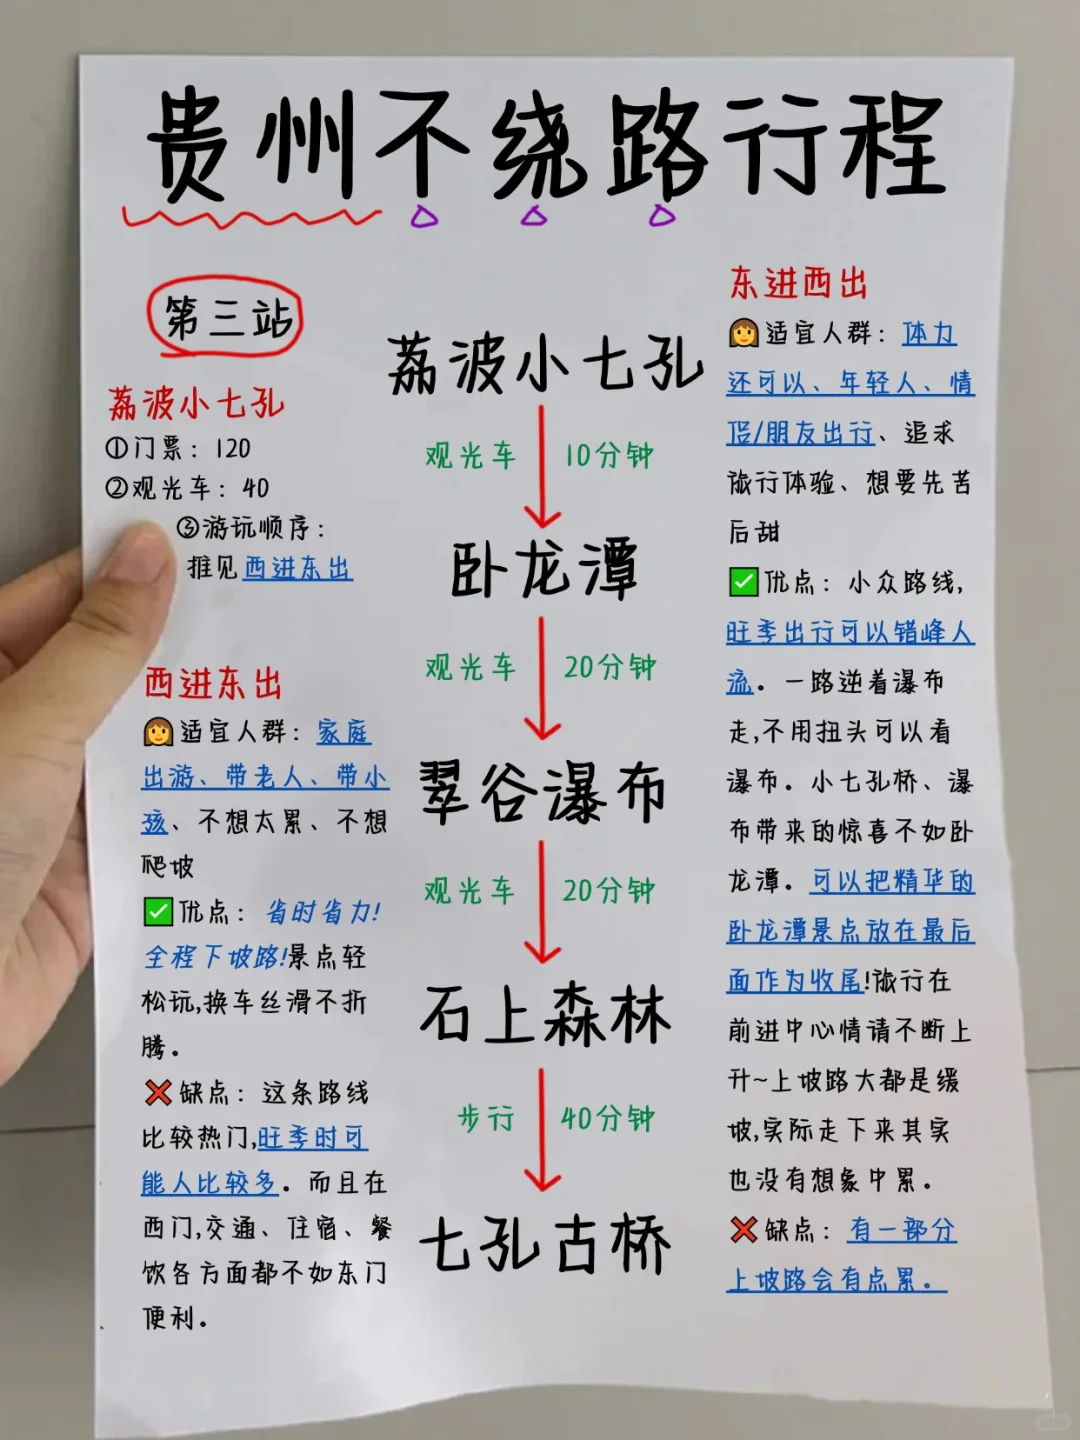 贵州不绕路行程
第三站
荔波小七孔
①门票：120
②观光车：40
③游玩顺序：
推见西进东出
西进东出
适宜人群：家庭
出游、带老人、带小
孩、不想太累、不想
爬坡
✅优点：省时省力!
全程下坡路!景点轻
松玩,换车丝滑不折
腾。
❌缺点：这条路线
比较热门,旺季时可
能人比较多。而且在
西门,交通、住宿、餐
饮各方面都不如东门
便利。
荔波小七孔
观光车 10分钟
卧龙潭
观光车 20分钟
翠谷瀑布
观光车 20分钟
石上森林
步行 40分钟
七孔古桥
东进西出
适宜人群：体力
还可以、年轻人、情
侣/朋友出行、追求
旅行体验、想要先苦
后甜
✅优点：小众路线,
旺季出行可以错峰人
流。一路逆着瀑布
走,不用扭头可以看
瀑布。小七孔桥、瀑
布带来的惊喜不如卧
龙潭。可以把精华的
卧龙潭景点放在最后
面作为收尾!旅行在
前进中心情请不断上
升~上坡路大都是缓
坡,实际走下来其实
也没有想象中累。
❌缺点：有一部分
上坡路会有点累。